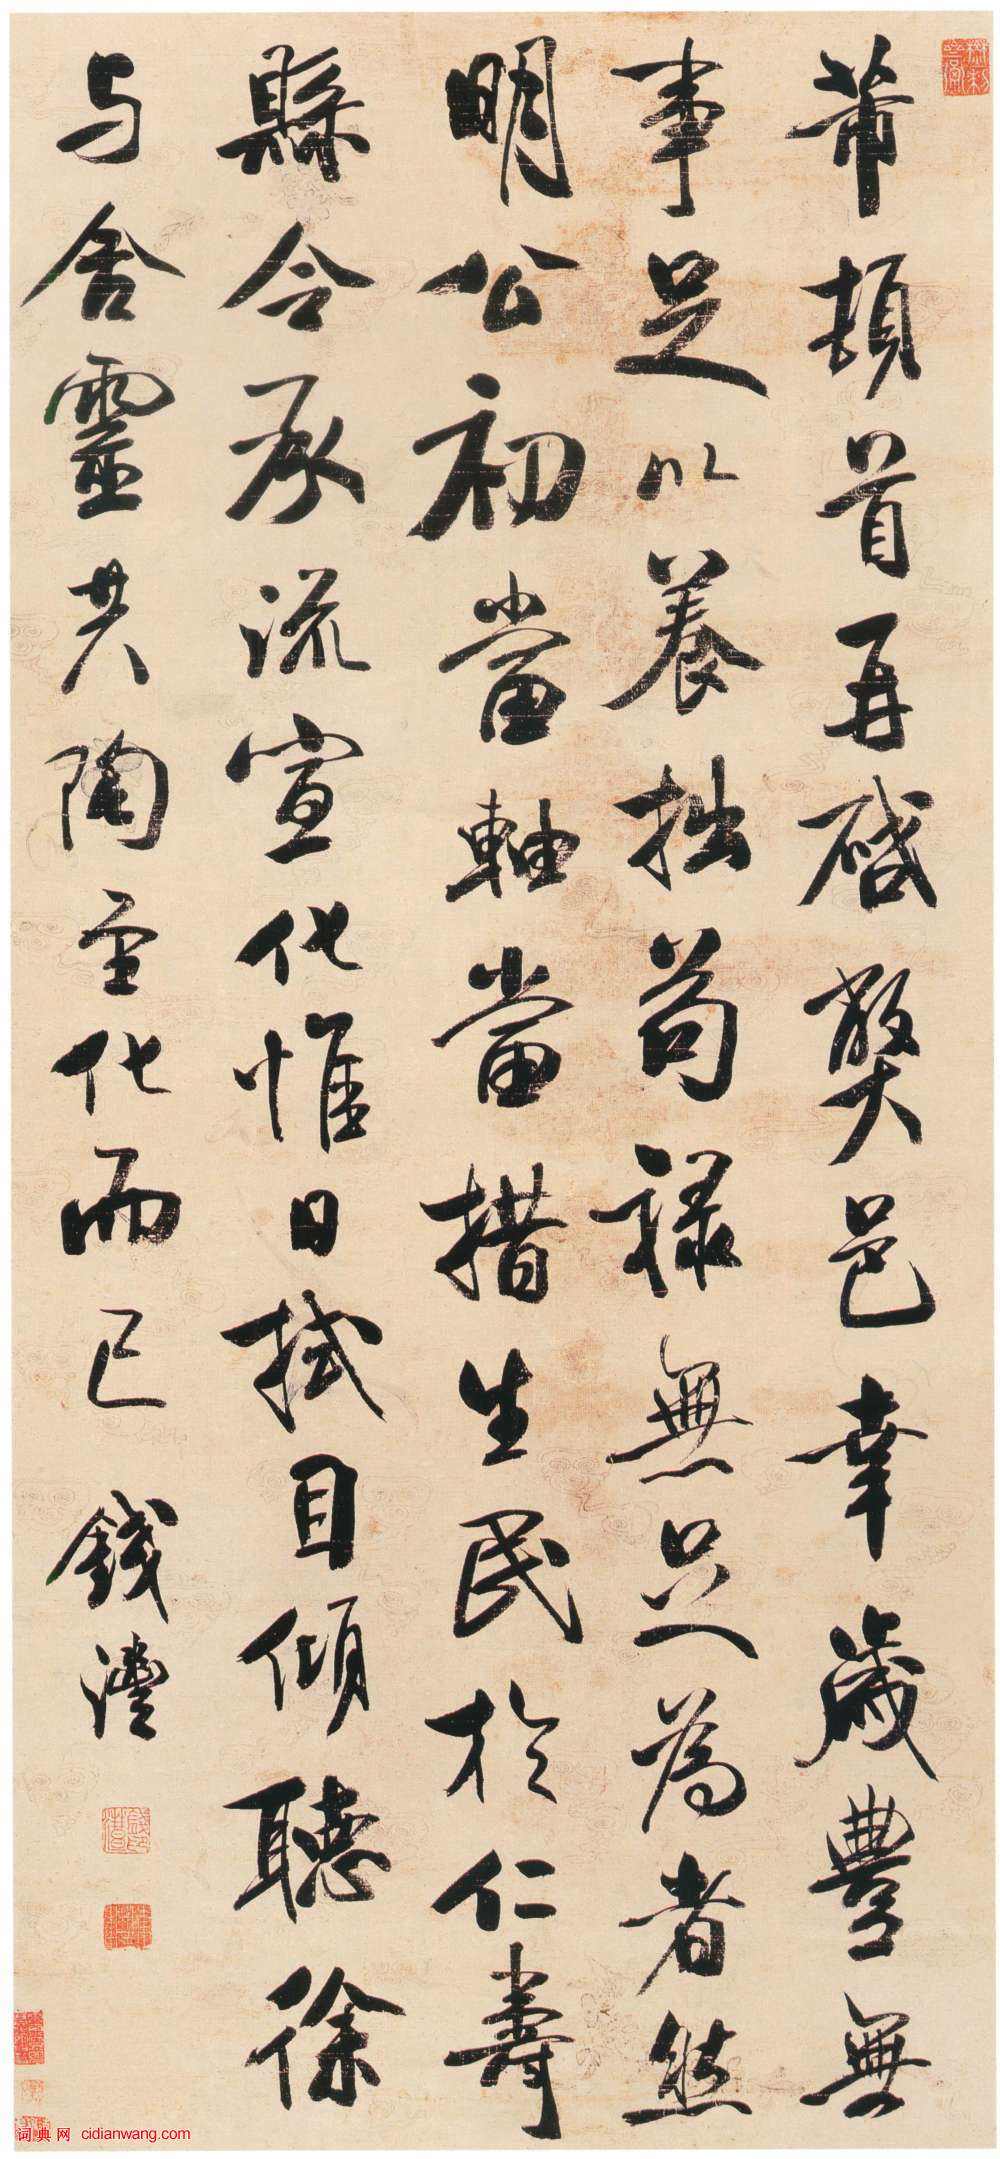 芾頓首再啓弊邑幸歲豐無
事足以養拙苟祿無足為者然
明公初當軸當措生民於仁壽
縣令承流宣化惟日拭目傾聽徐
与含靈共陶至化而已
錢灃
词典网 cidianwang.com